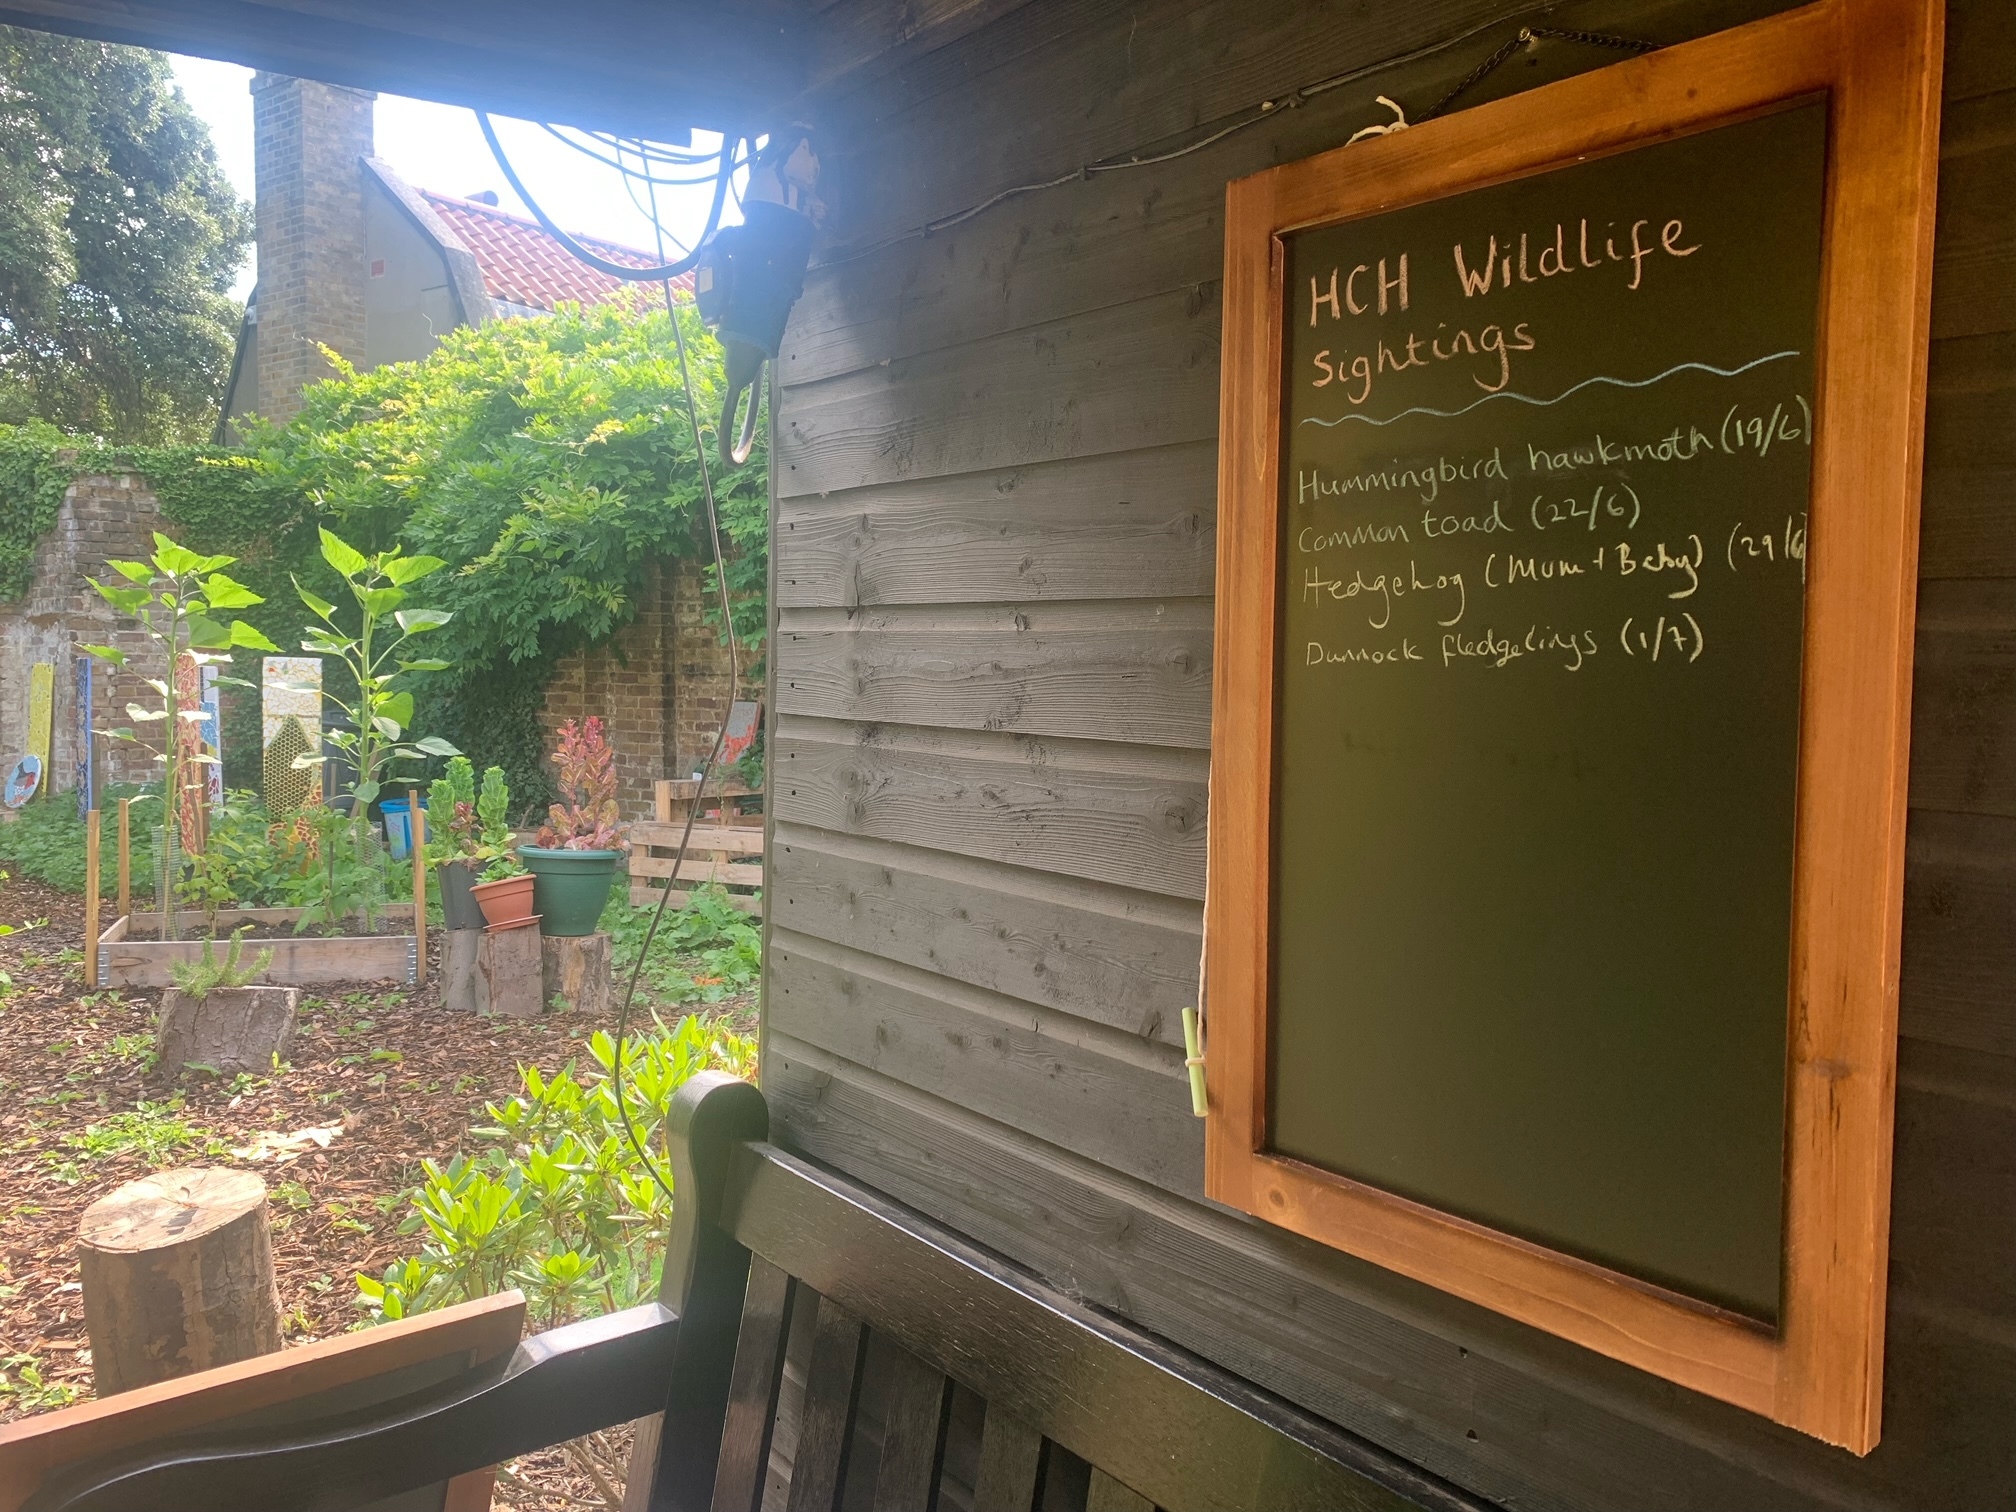 HCH Wildlife
Sightings
Hummingbird hawkmoth (19/6)
Common toad (22/6)
Hedgehog (Mum + Baby) (29/6
Dunnock fledgelings (1/7)